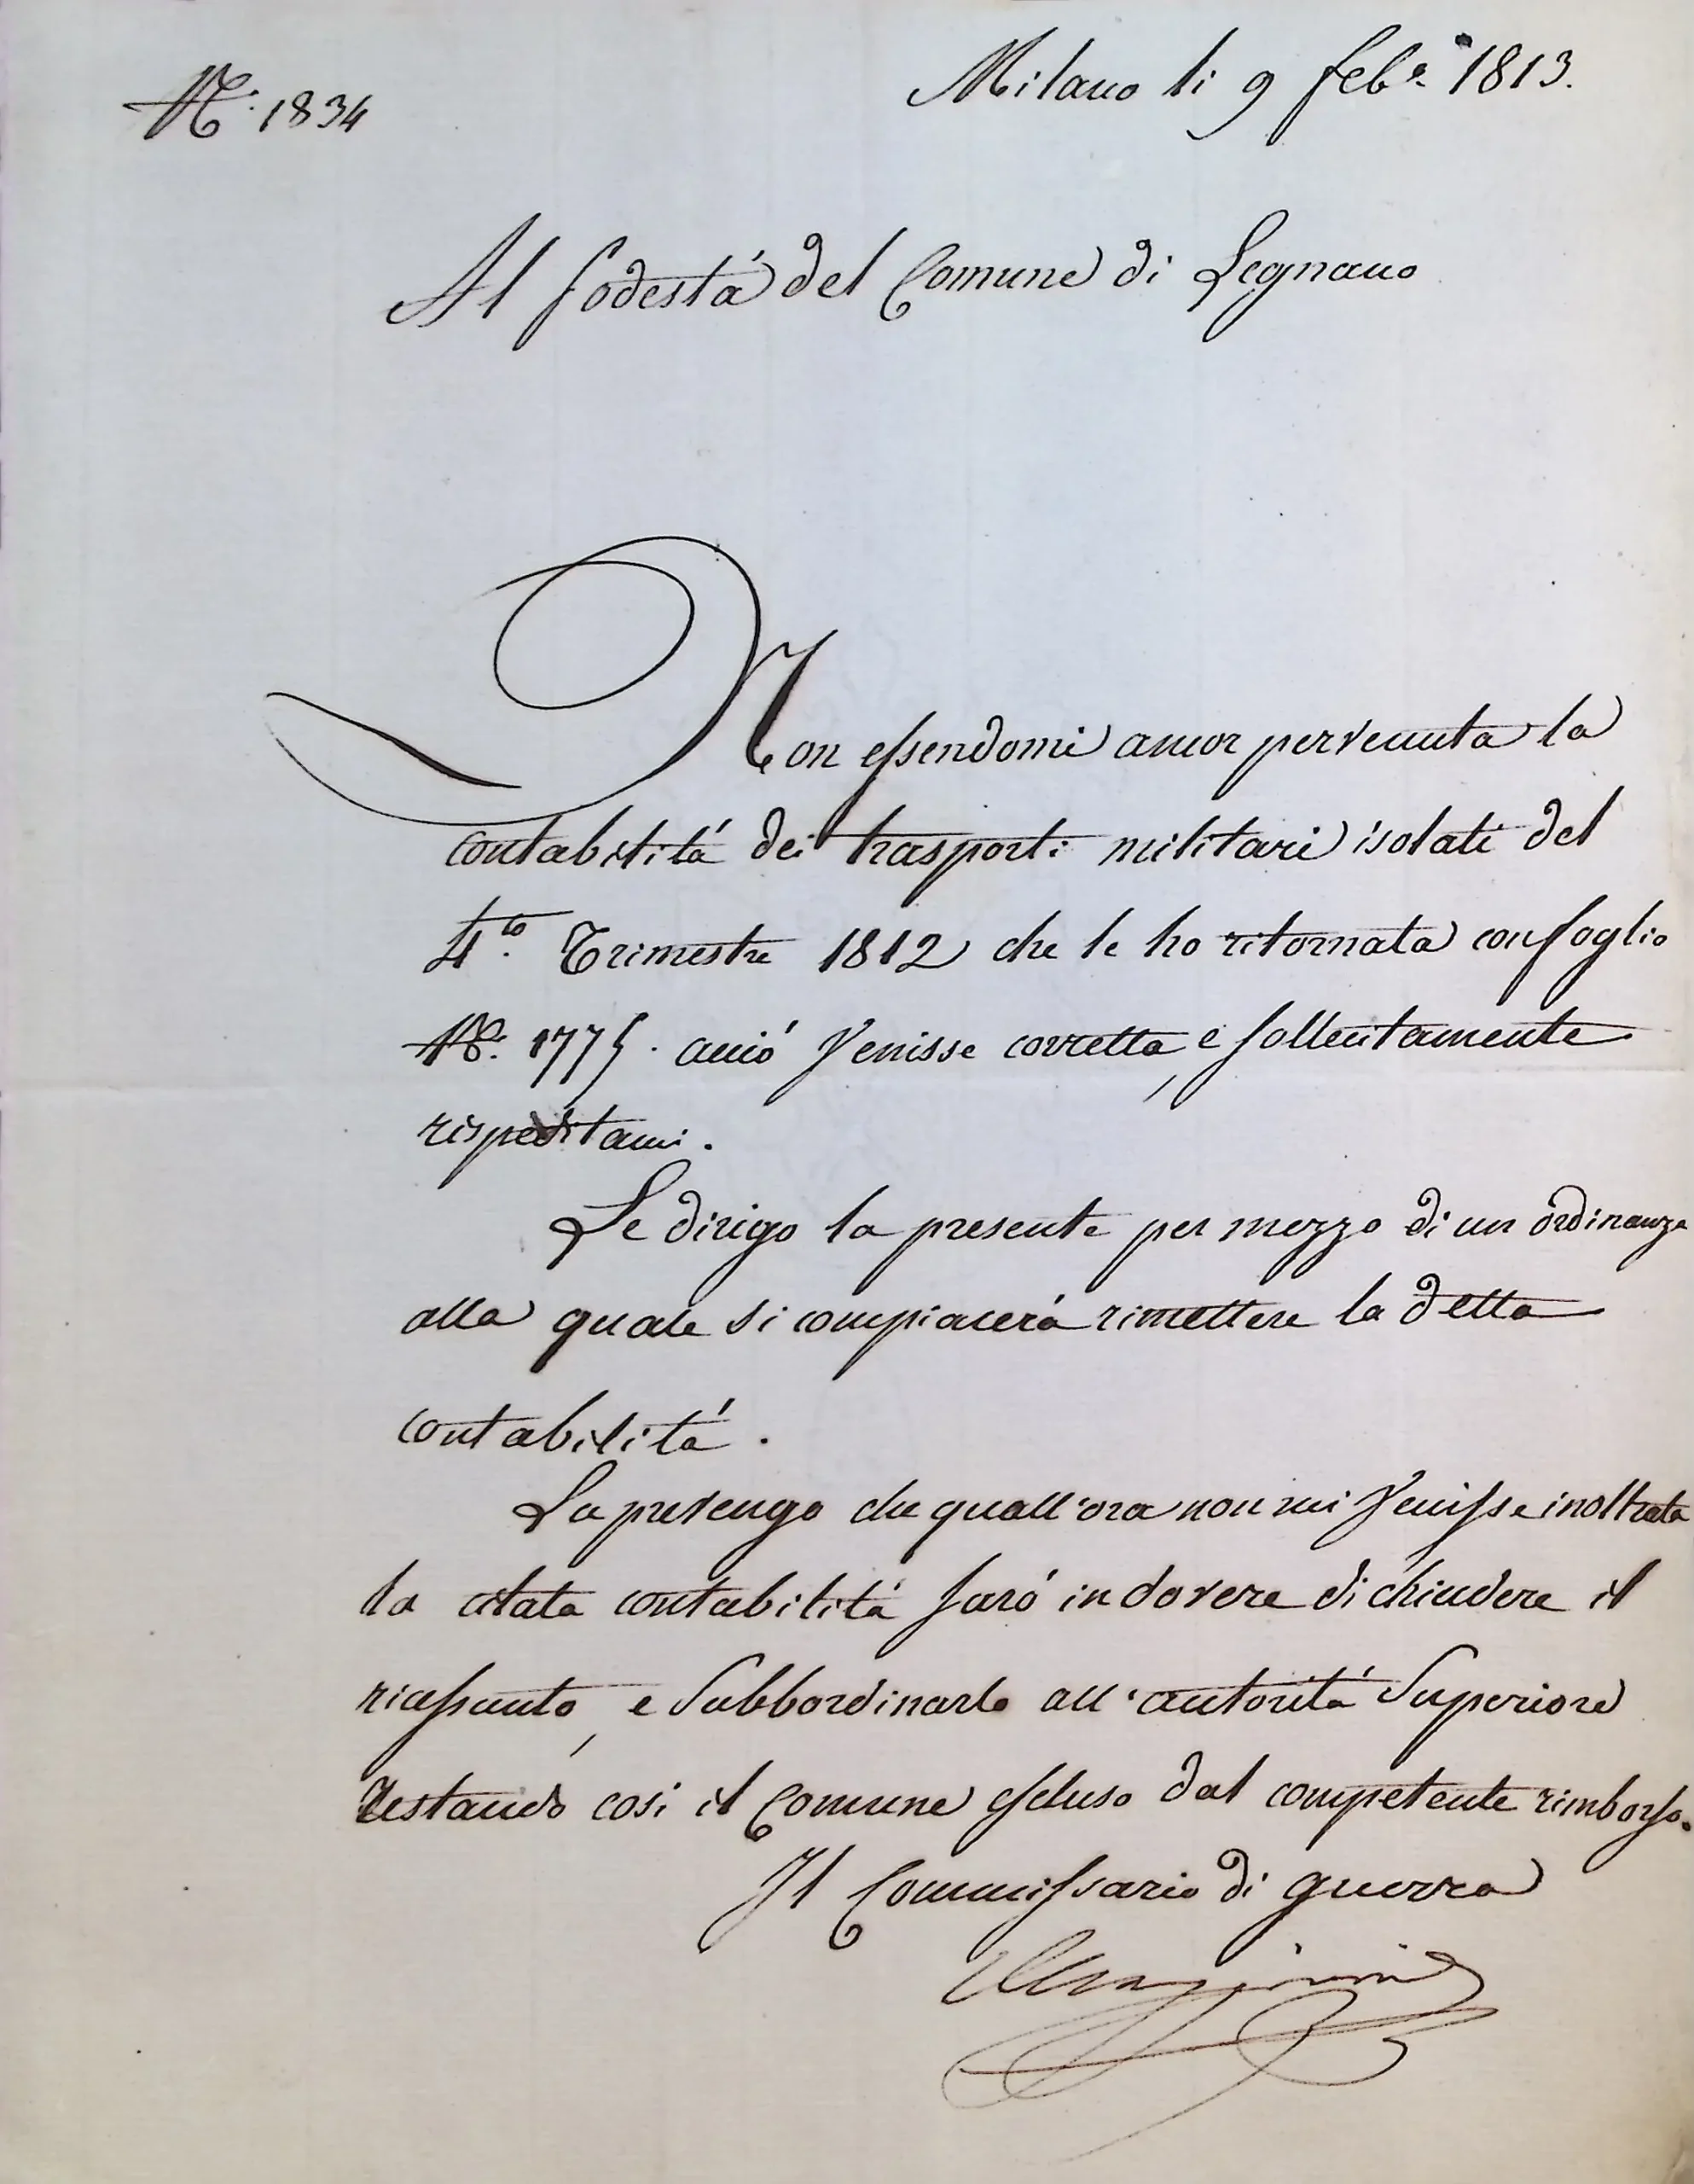 N.º 1834
Milano li 9 Feb.º 1813.
Al Podestà del Comune di Legnano
Non essendomi ancor pervenuta la
contabilità dei trasporti militari isolati del
4.to Trimestre 1812 che le ho ritornata con foglio
N.º 1775. acciò venisse corretta, e sollecitamente
rispeditami.
Le dirigo la presente per mezzo di un ordinanza
alla quale si compiacerà rimettere la detta
contabilità.
La prevengo che quall'ora non mi venisse inoltrata
la citata contabilità sarò in dovere di chiudere il
riassunto, e subbordinarlo all'autorità Superiore
restando così il Comune escluso dal competente rimborso.
Il Commissario di guerra